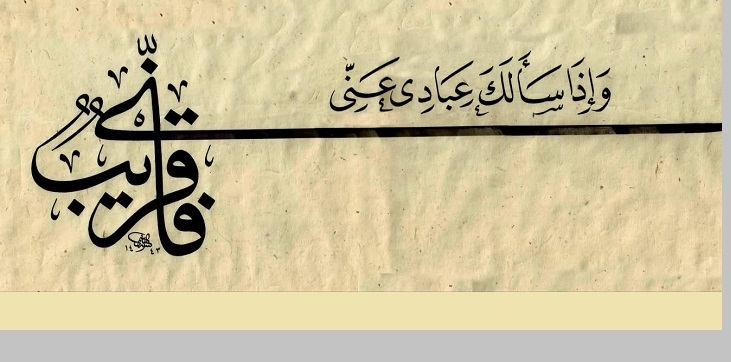 وَإِذَا سَأَلَكَ عِبَادِى عَنِّى
فَإِنِّى قَرِيبٌ
١٤٤٣